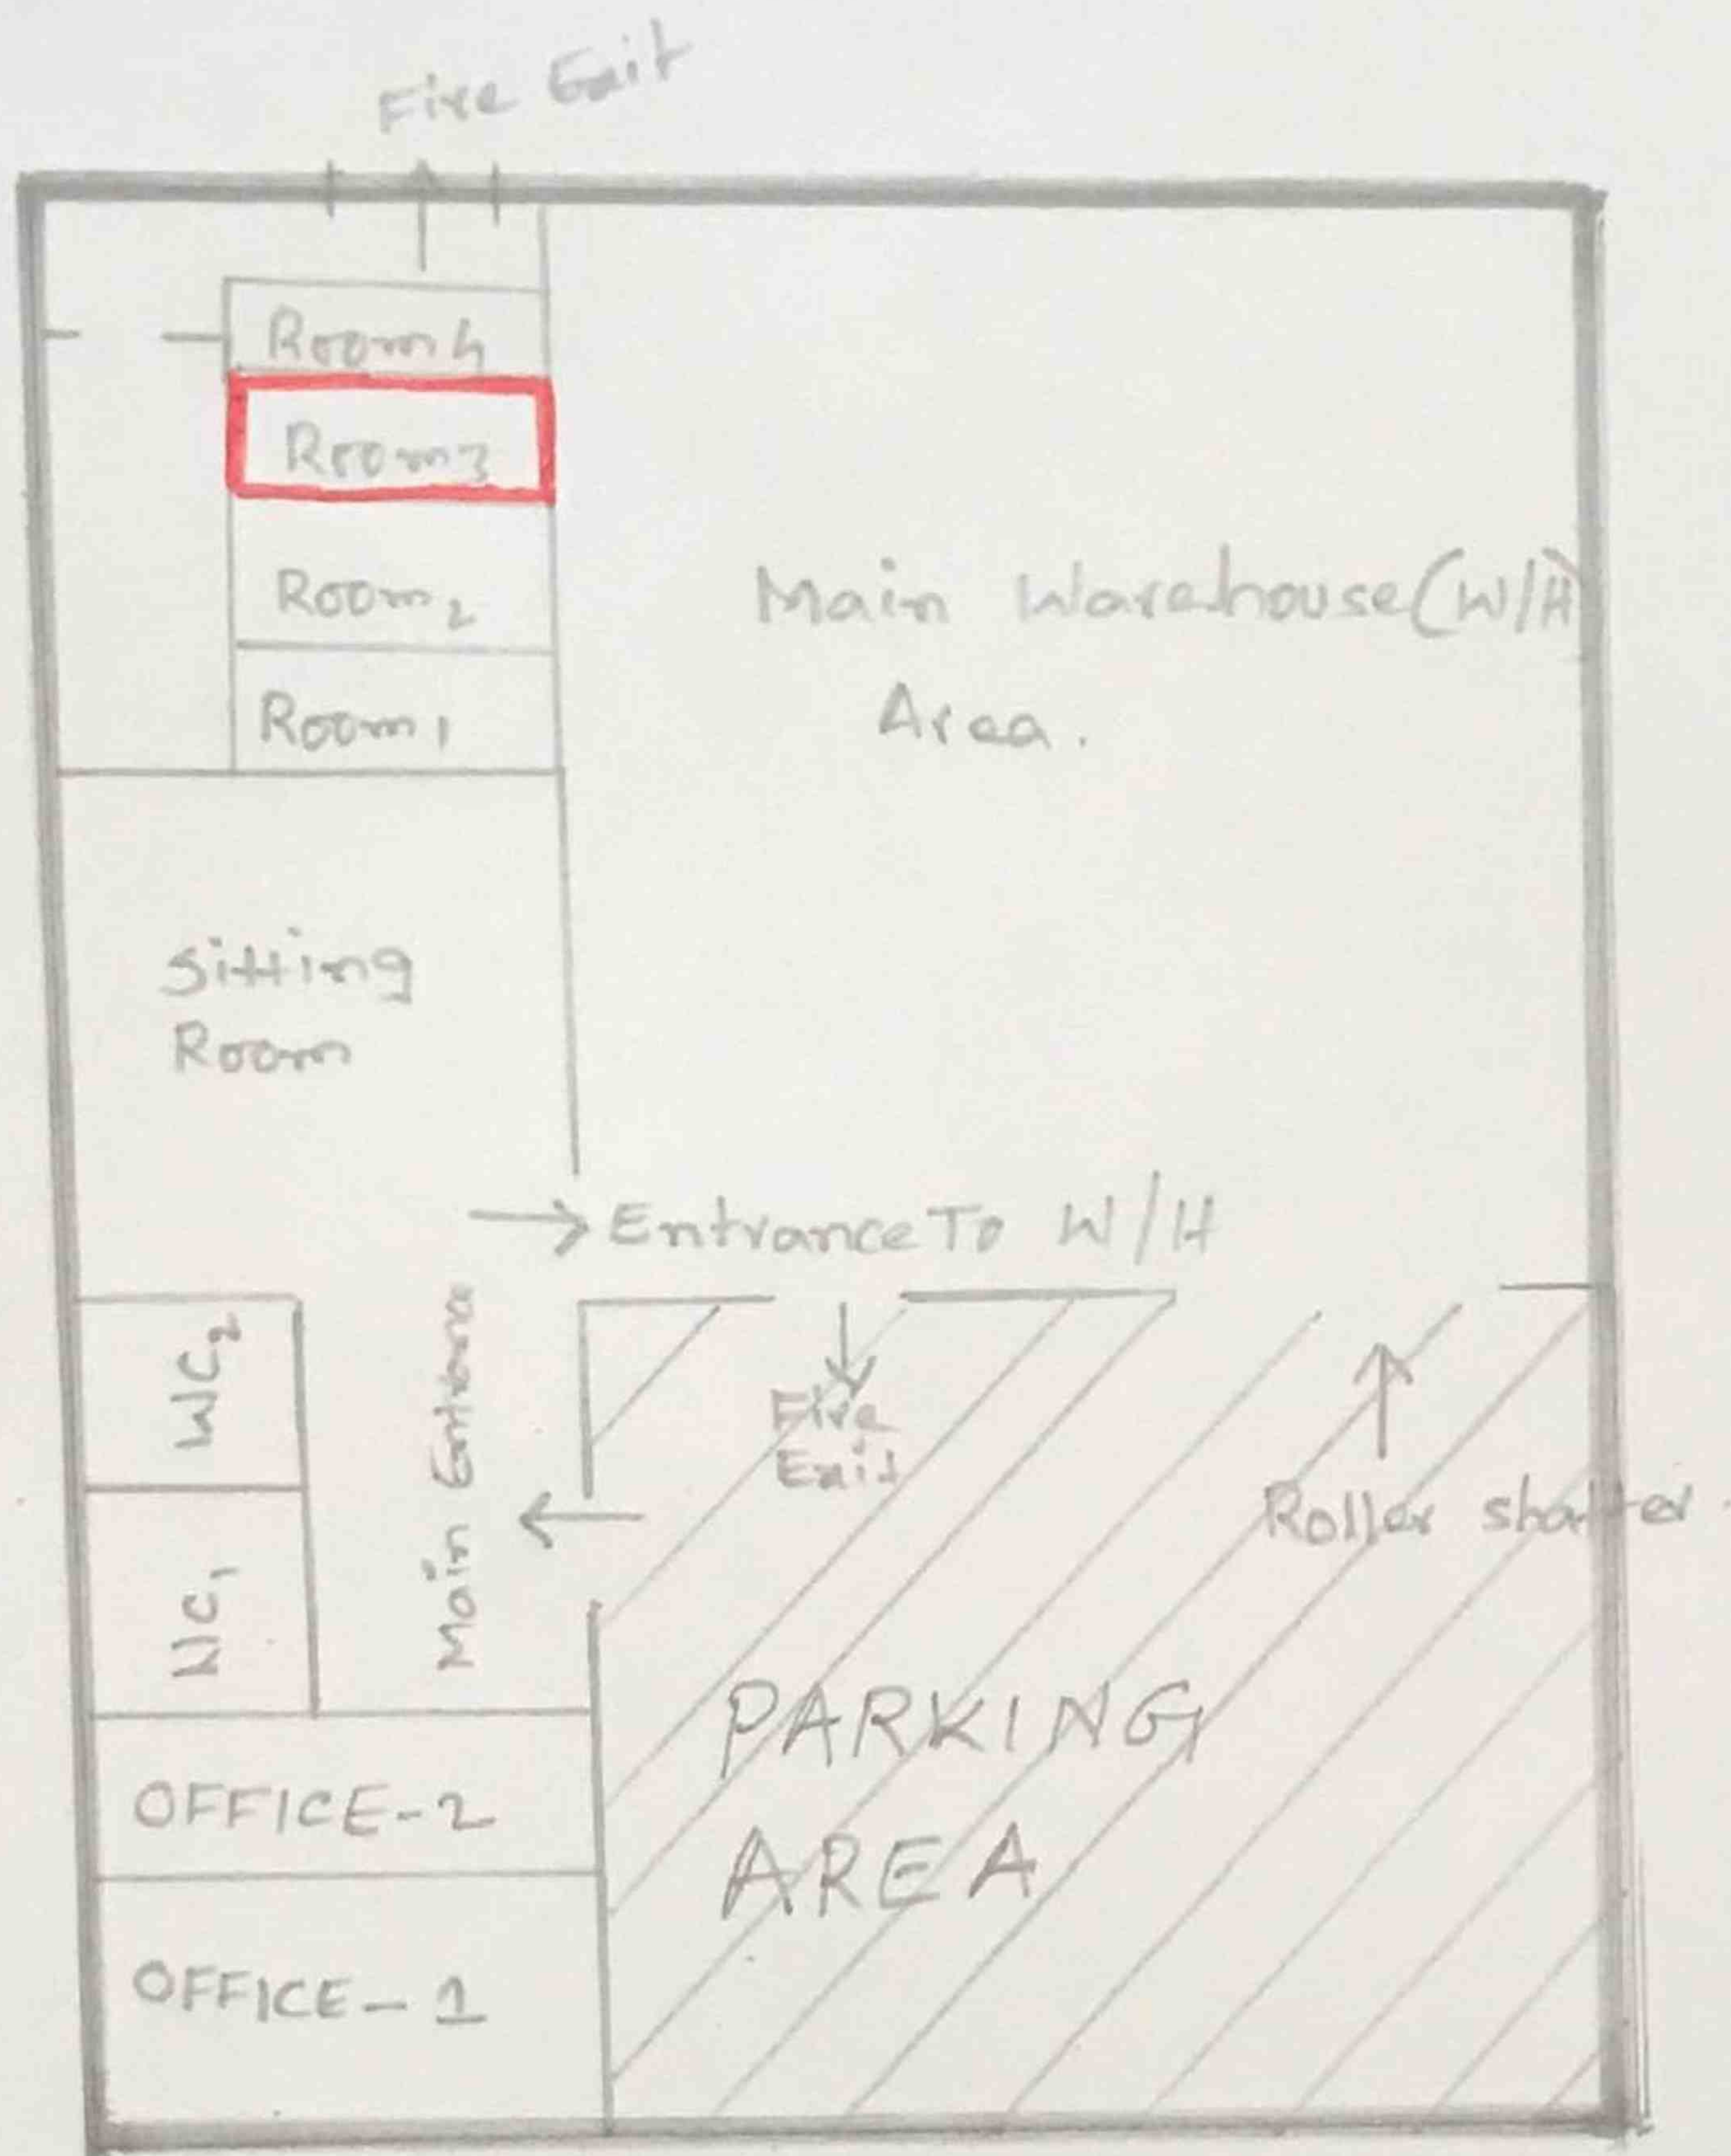 Fire Exit
Room 4
Room 3
Room 2
Room 1
Main Warehouse (W/H)
Area.
Sitting
Room
Entrance To W/H
WC2
Main Entrance
Fire
Exit
Roller shutter
WC1
PARKING
AREA
OFFICE-2
OFFICE-1